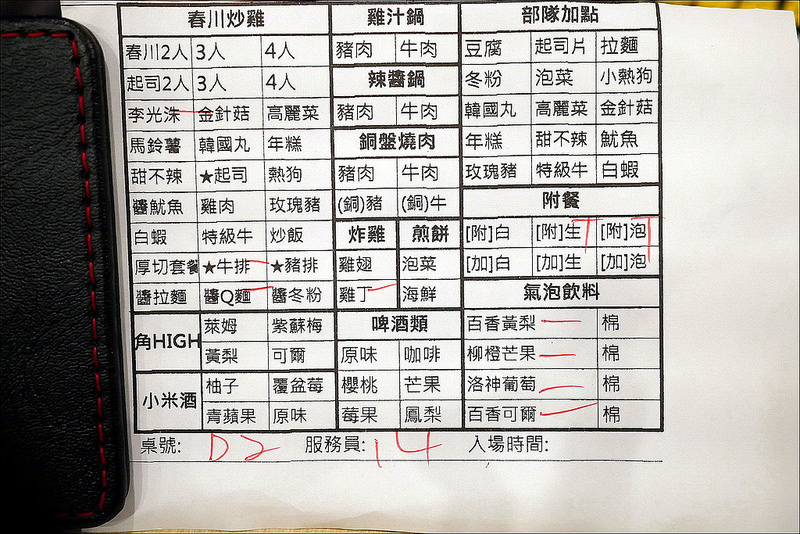 春川炒雞 雞汁鍋 部隊加點
春川2人 3人 4人 豬肉 牛肉 豆腐 起司片 拉麵
起司2人 3人 4人 辣醬鍋 冬粉 泡菜 小熱狗
李光洙 金針菇 高麗菜 豬肉 牛肉 韓國丸 高麗菜 金針菇
馬鈴薯 韓國丸 年糕 銅盤燒肉 年糕 甜不辣 魷魚
甜不辣 ★起司 熱狗 豬肉 牛肉 玫瑰豬 特級牛 白蝦
醬魷魚 雞肉 玫瑰豬 (銅)豬 (銅)牛 附餐
白蝦 特級牛 炒飯 炸雞 煎餅 [附]白 [附]生 [附]泡
厚切套餐 ★牛排 ★豬排 雞翅 泡菜 [加]白 [加]生 [加]泡
醬拉麵 醬Q麵 醬冬粉 雞丁 海鮮 氣泡飲料
角HIGH 萊姆 紫蘇梅 啤酒類 百香黃梨 棉
黃梨 可爾 原味 咖啡 柳橙芒果 棉
小米酒 柚子 覆盆莓 櫻桃 芒果 洛神葡萄 棉
青蘋果 原味 莓果 鳳梨 百香可爾 棉
桌號: D2 服務員: 14 入場時間: